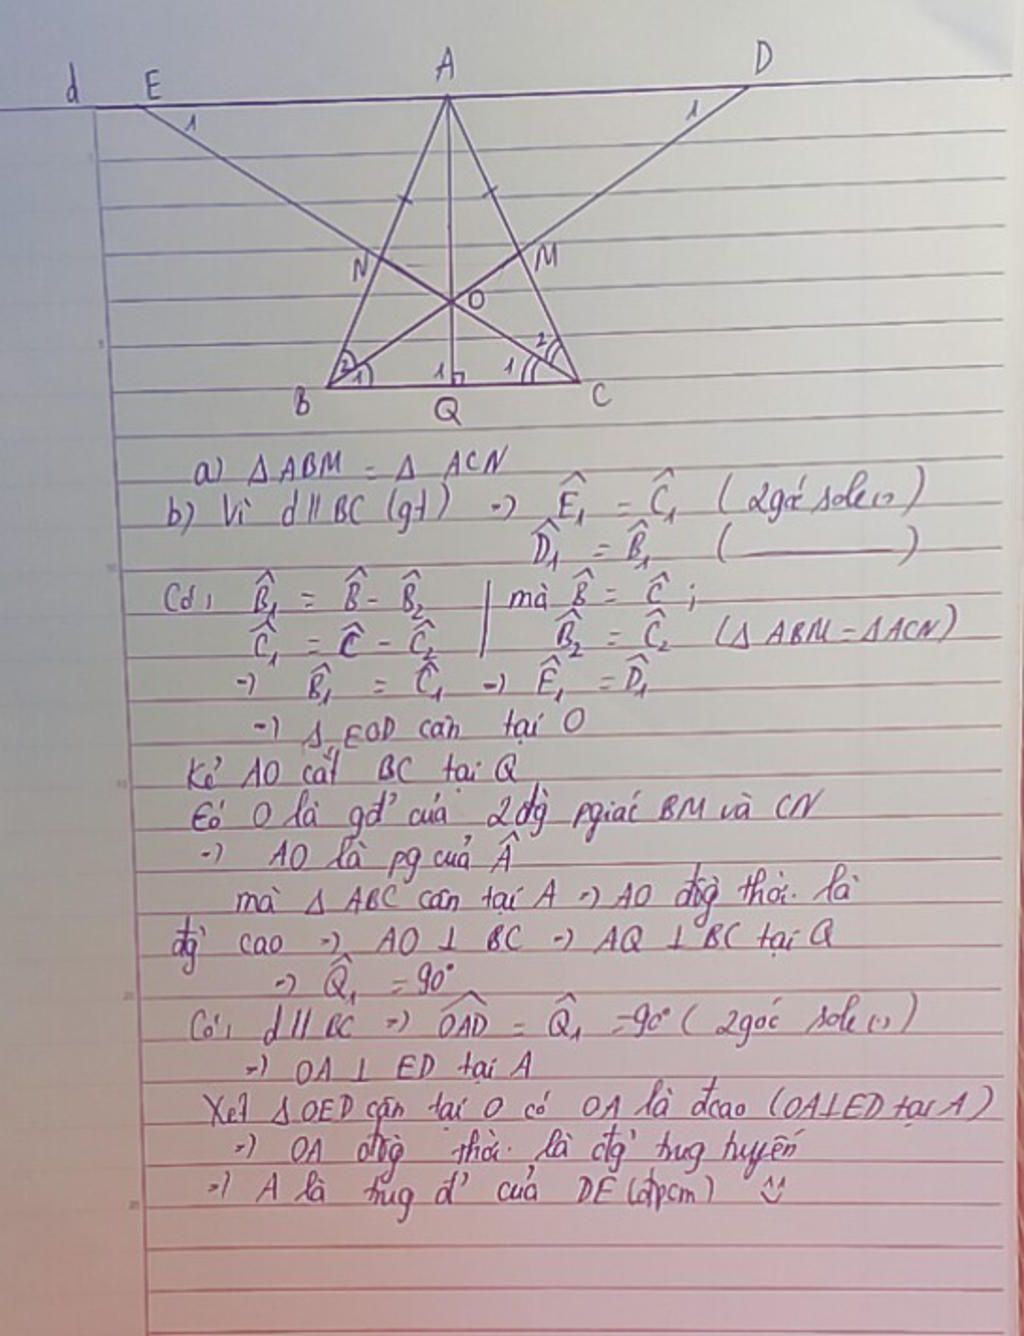 d E A D
1 1
N M
O
2 1 1 1 2
B Q C
a) Δ ABM = Δ ACN
b) Vì d // BC (gt) => Ê₁ = Ĉ₁ (2góc sole(..)
D̂₁ = B̂₁ (————)
Có, B̂₁ = B̂ - B̂₂ | mà B̂ = Ĉ ;
Ĉ₁ = Ĉ - Ĉ₂ | B̂₂ = Ĉ₂ (Δ ABM = Δ ACN)
=> B̂₁ = Ĉ₁ => Ê₁ = D̂₁
=> Δ EOD cân tại O
Kẻ AO cắt BC tại Q
Có O là gđ' của 2đg pgiác BM và CN
=> AO là pg của Â
mà Δ ABC cân tại A => AO đồg thời là
đg' cao => AO ⊥ BC => AQ ⊥ BC tại Q
=> Q̂₁ = 90°
Có, d // BC => OAD̂ = Q̂₁ = 90° (2góc sole(..)
=> OA ⊥ ED tại A
Xét Δ OED cân tại O có OA là đcao (OA⊥ED tại A)
=> OA đồg thời là đg' trug tuyến
=> A là trug đ' của DE (đpcm)